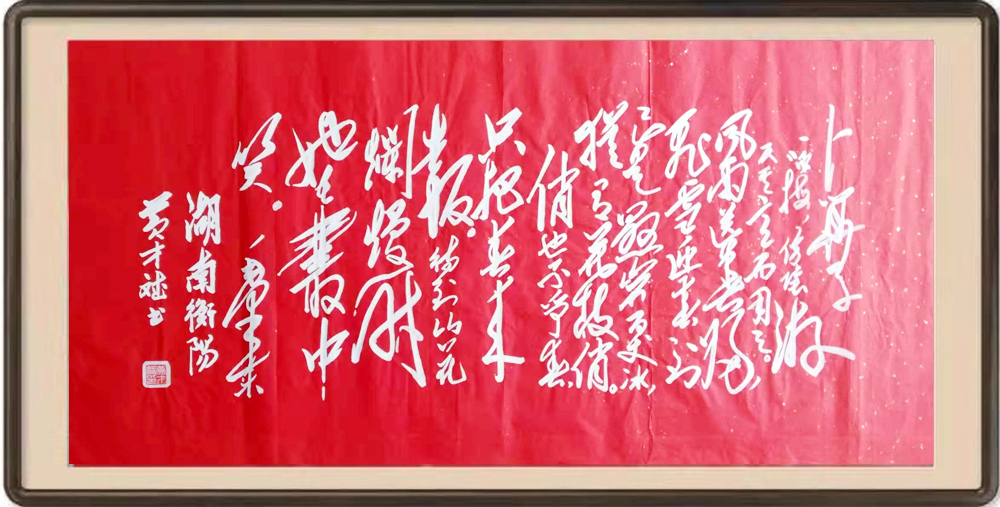 卜算子
咏梅、读陆游
反其意而用之。
风雨送春归,
飛雪迎春到
已是悬崖百丈冰,
犹有花枝俏。
俏也不争春,
只把春来
报。待到山花
烂漫时
她在丛中
笑。
湖南衡陽
黄才斌书